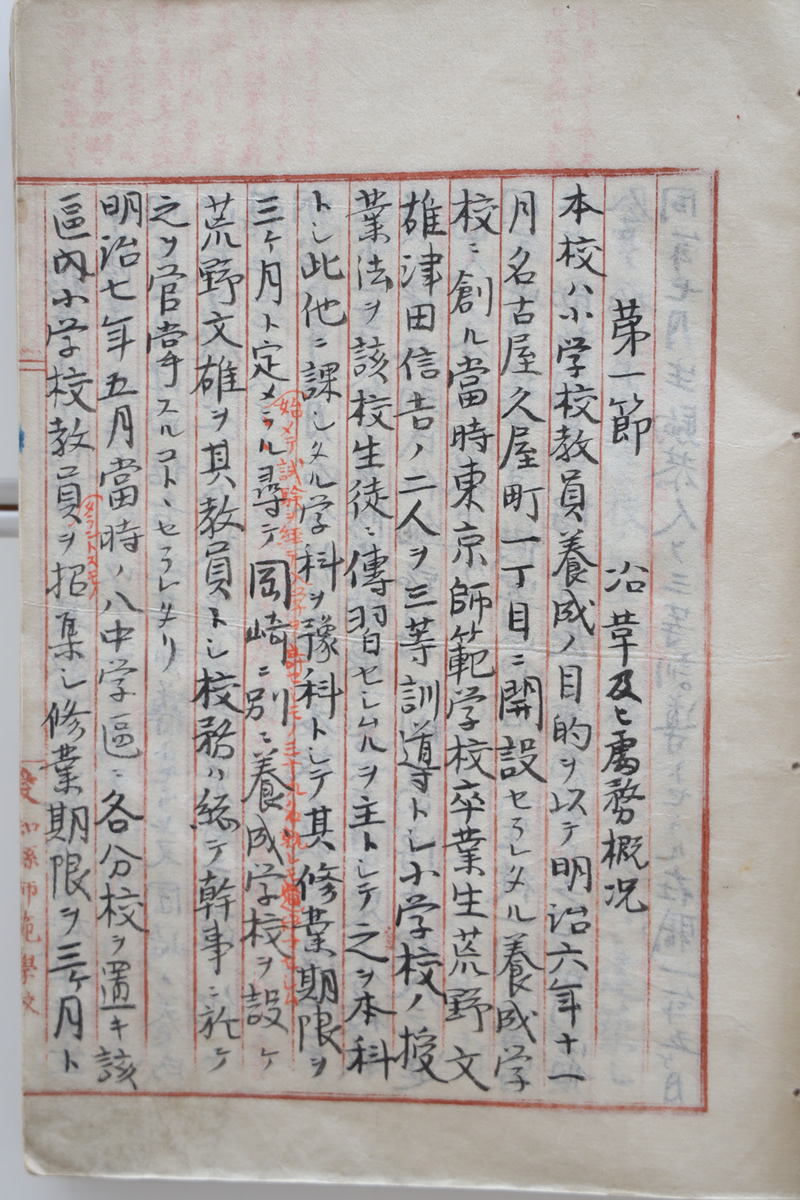 第一節 沿革及ヒ處務概况
本校ハ小学校教員養成ノ目的ヲ以テ明治六年十一
月名古屋久屋町一丁目ニ開設セラレタル養成学
校ニ創ル當時東京師範学校卒業生荒野文
雄津田信吉ノ二人ヲ三等訓導トシ小学校ノ授
業法ヲ該校生徒ニ傳習セシムルヲ主トシテ之ヲ本科
トシ此他ニ課シタル学科ヲ豫科トシテ其修業期限ヲ
三ケ月ト定メラル尋テ岡崎ニ別ニ養成学校ヲ設ケ
始メテ試験ヲ経テ
荒野文雄ヲ其教員トシ校務ハ総テ幹事ニ於ケ
之ヲ管掌スルコトヽセラレタリ
明治七年五月當時ノ八中学區ニ各分校ヲ置キ該
區内小学校教員ヲ招集シ修業期限ヲ三ケ月ト
タラントスモノ
愛知縣師範學校